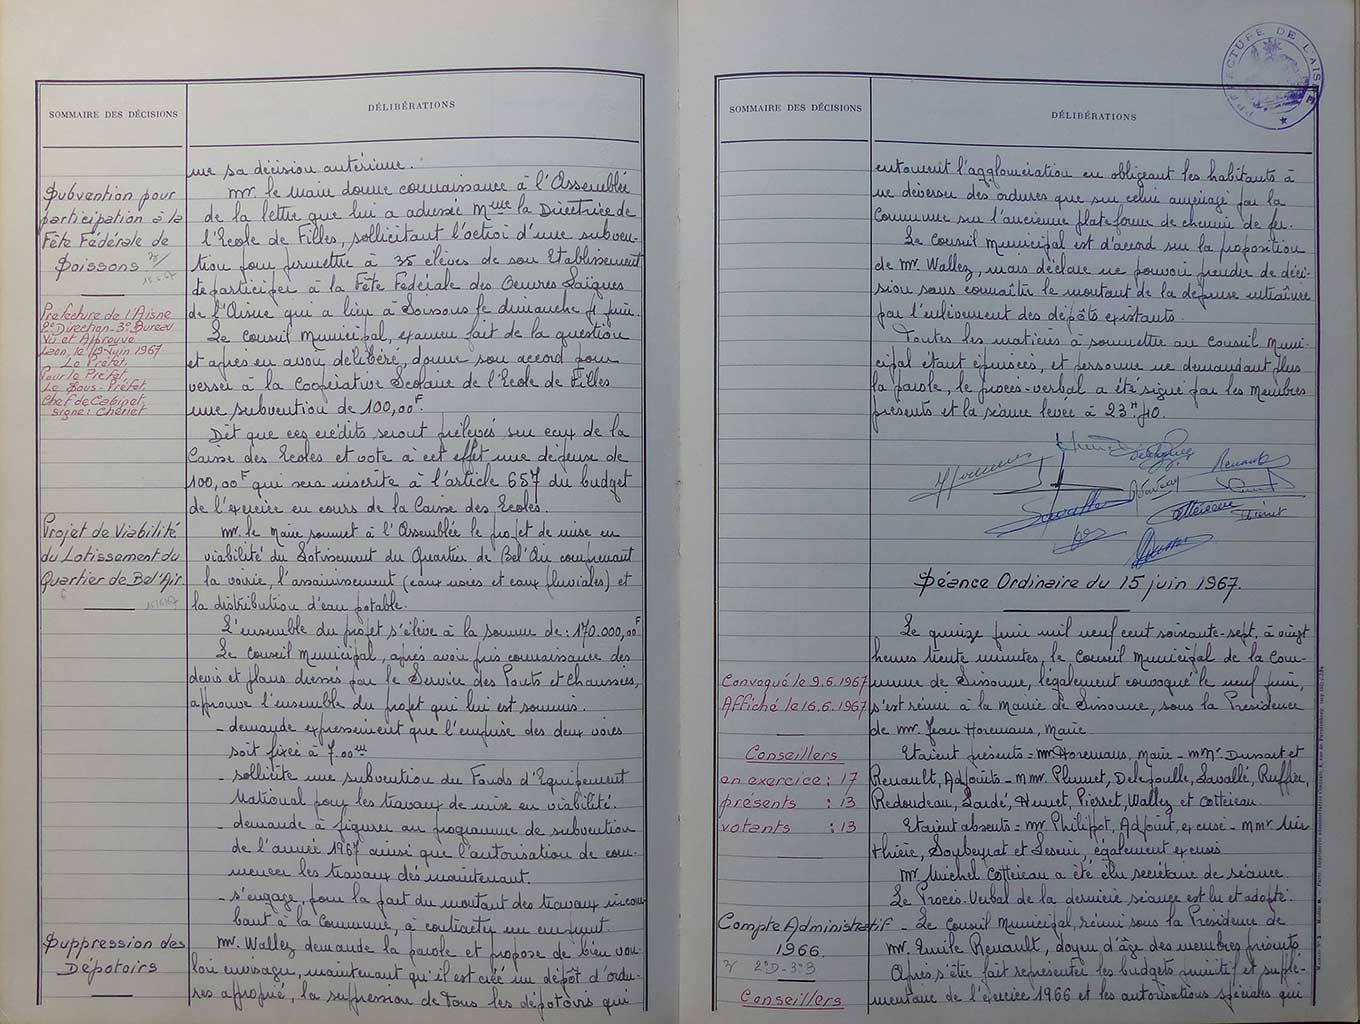 SOMMAIRE DES DÉCISIONS
DÉLIBÉRATIONS
une sa décision antérieure.
Subvention pour
participation à la
Fête Fédérale de
Soissons
Mr. le Maire donne connaissance à l'Assemblée
de la lettre que lui a adressée Mme la Directrice de
l'Ecole de Filles, sollicitant l'octroi d'une subven-
tion pour permettre à 35 élèves de son Etablissement
de participer à la Fête Fédérale des Oeuvres Laïques
de l'Aisne qui a lieu à Soissons le dimanche 4 juin.
Préfecture de l'Aisne
2e Direction - 3e Bureau
Vu et Approuvé
Laon, le 19 Juin 1967
Le Préfet,
Pour le Préfet,
Le Sous-Préfet,
Chef de Cabinet,
signé: Chériet
Le Conseil Municipal, examen fait de la question
et après en avoir délibéré, donne son accord pour
verser à la Coopérative Scolaire de l'Ecole de Filles
une subvention de 100,00F.
Dit que ces crédits seront prélevés sur ceux de la
Caisse des Ecoles et vote à cet effet une dépense de
100,00F qui sera inscrite à l'article 657 du budget
de l'exercice en cours de la Caisse des Ecoles.
Projet de Viabilité
du Lotissement du
Quartier de Bel'Air.
Mr. le Maire soumet à l'Assemblée le projet de mise en
viabilité du Lotissement du Quartier de Bel'Air comprenant
la voirie, l'assainissement (eaux usées et eaux pluviales) et
la distribution d'eau potable.
L'ensemble du projet s'élève à la somme de : 170.000,00F
Le Conseil Municipal, après avoir pris connaissance des
devis et plans dressés par le Service des Ponts et Chaussées,
approuve l'ensemble du projet qui lui est soumis.
- demande expressément que l'emprise des deux voies
soit fixée à 7.00m
- sollicite une subvention du Fonds d'Equipement
National pour les travaux de mise en viabilité.
- demande à figurer au programme de subvention
de l'année 1967 ainsi que l'autorisation de com-
mencer les travaux dès maintenant.
- s'engage, pour la part du montant des travaux incom-
bant à la Commune, à contracter un emprunt.
Suppression des
Dépotoirs
Mr. Wallez demande la parole et propose de bien vou-
loir envisager, maintenant qu'il est créé un dépôt d'ordu-
res approprié, la suppression de tous les dépotoirs qui
PREFECTURE DE L'AISNE
SOMMAIRE DES DÉCISIONS
DÉLIBÉRATIONS
entourent l'agglomération en obligeant les habitants à
ne déverser des ordures que sur celui aménagé par la
Commune sur l'ancienne plateforme de chemin de fer.
Le Conseil Municipal est d'accord sur la proposition
de Mr. Wallez, mais déclare ne pouvoir prendre de déci-
sion sans connaître le montant de la dépense entraînée
par l'enlèvement des dépôts existants.
Toutes les matières à soumettre au Conseil Muni-
cipal étant épuisées, et personne ne demandant plus
la parole, le procès-verbal a été signé par les Membres
présents et la séance levée à 23H40.
Renault
Séance Ordinaire du 15 juin 1967.
Le quinze juin mil neuf cent soixante-sept, à vingt
heures trente minutes, le Conseil Municipal de la Com-
mune de Sissonne, légalement convoqué le neuf juin,
s'est réuni à la Mairie de Sissonne, sous la Présidence
de Mr. Jean Horemans, Maire.
Convoqué le 9.6.1967
Affiché le 16.6.1967
Conseillers
en exercice : 17
présents : 13
votants : 13
Etaient présents = Mr Horemans, Maire - MMrs Dussart et
Renault, Adjoints - MMr. Plumet, Delefoulle, Lavallé, Ruffin,
Redoudeau, Lardé, Humet, Pierret, Wallez et Cottereau.
Etaient absents = Mr Philippot, Adjoint, excusé - MMrs
thiérie, Soubeyrat et Leserin, également excusés
Mr. Michel Cottereau a été élu secrétaire de séance
Le Procès-Verbal de la dernière séance est lu et adopté.
Compte Administratif
1966.
2e D - 3e B
Conseillers
- Le Conseil Municipal, réuni sous la Présidence de
Mr. Emile Renault, doyen d'âge des membres présents
Après s'être fait représenter les budgets primitif et suplé-
mentaire de l'exercice 1966 et les autorisations spéciales qui